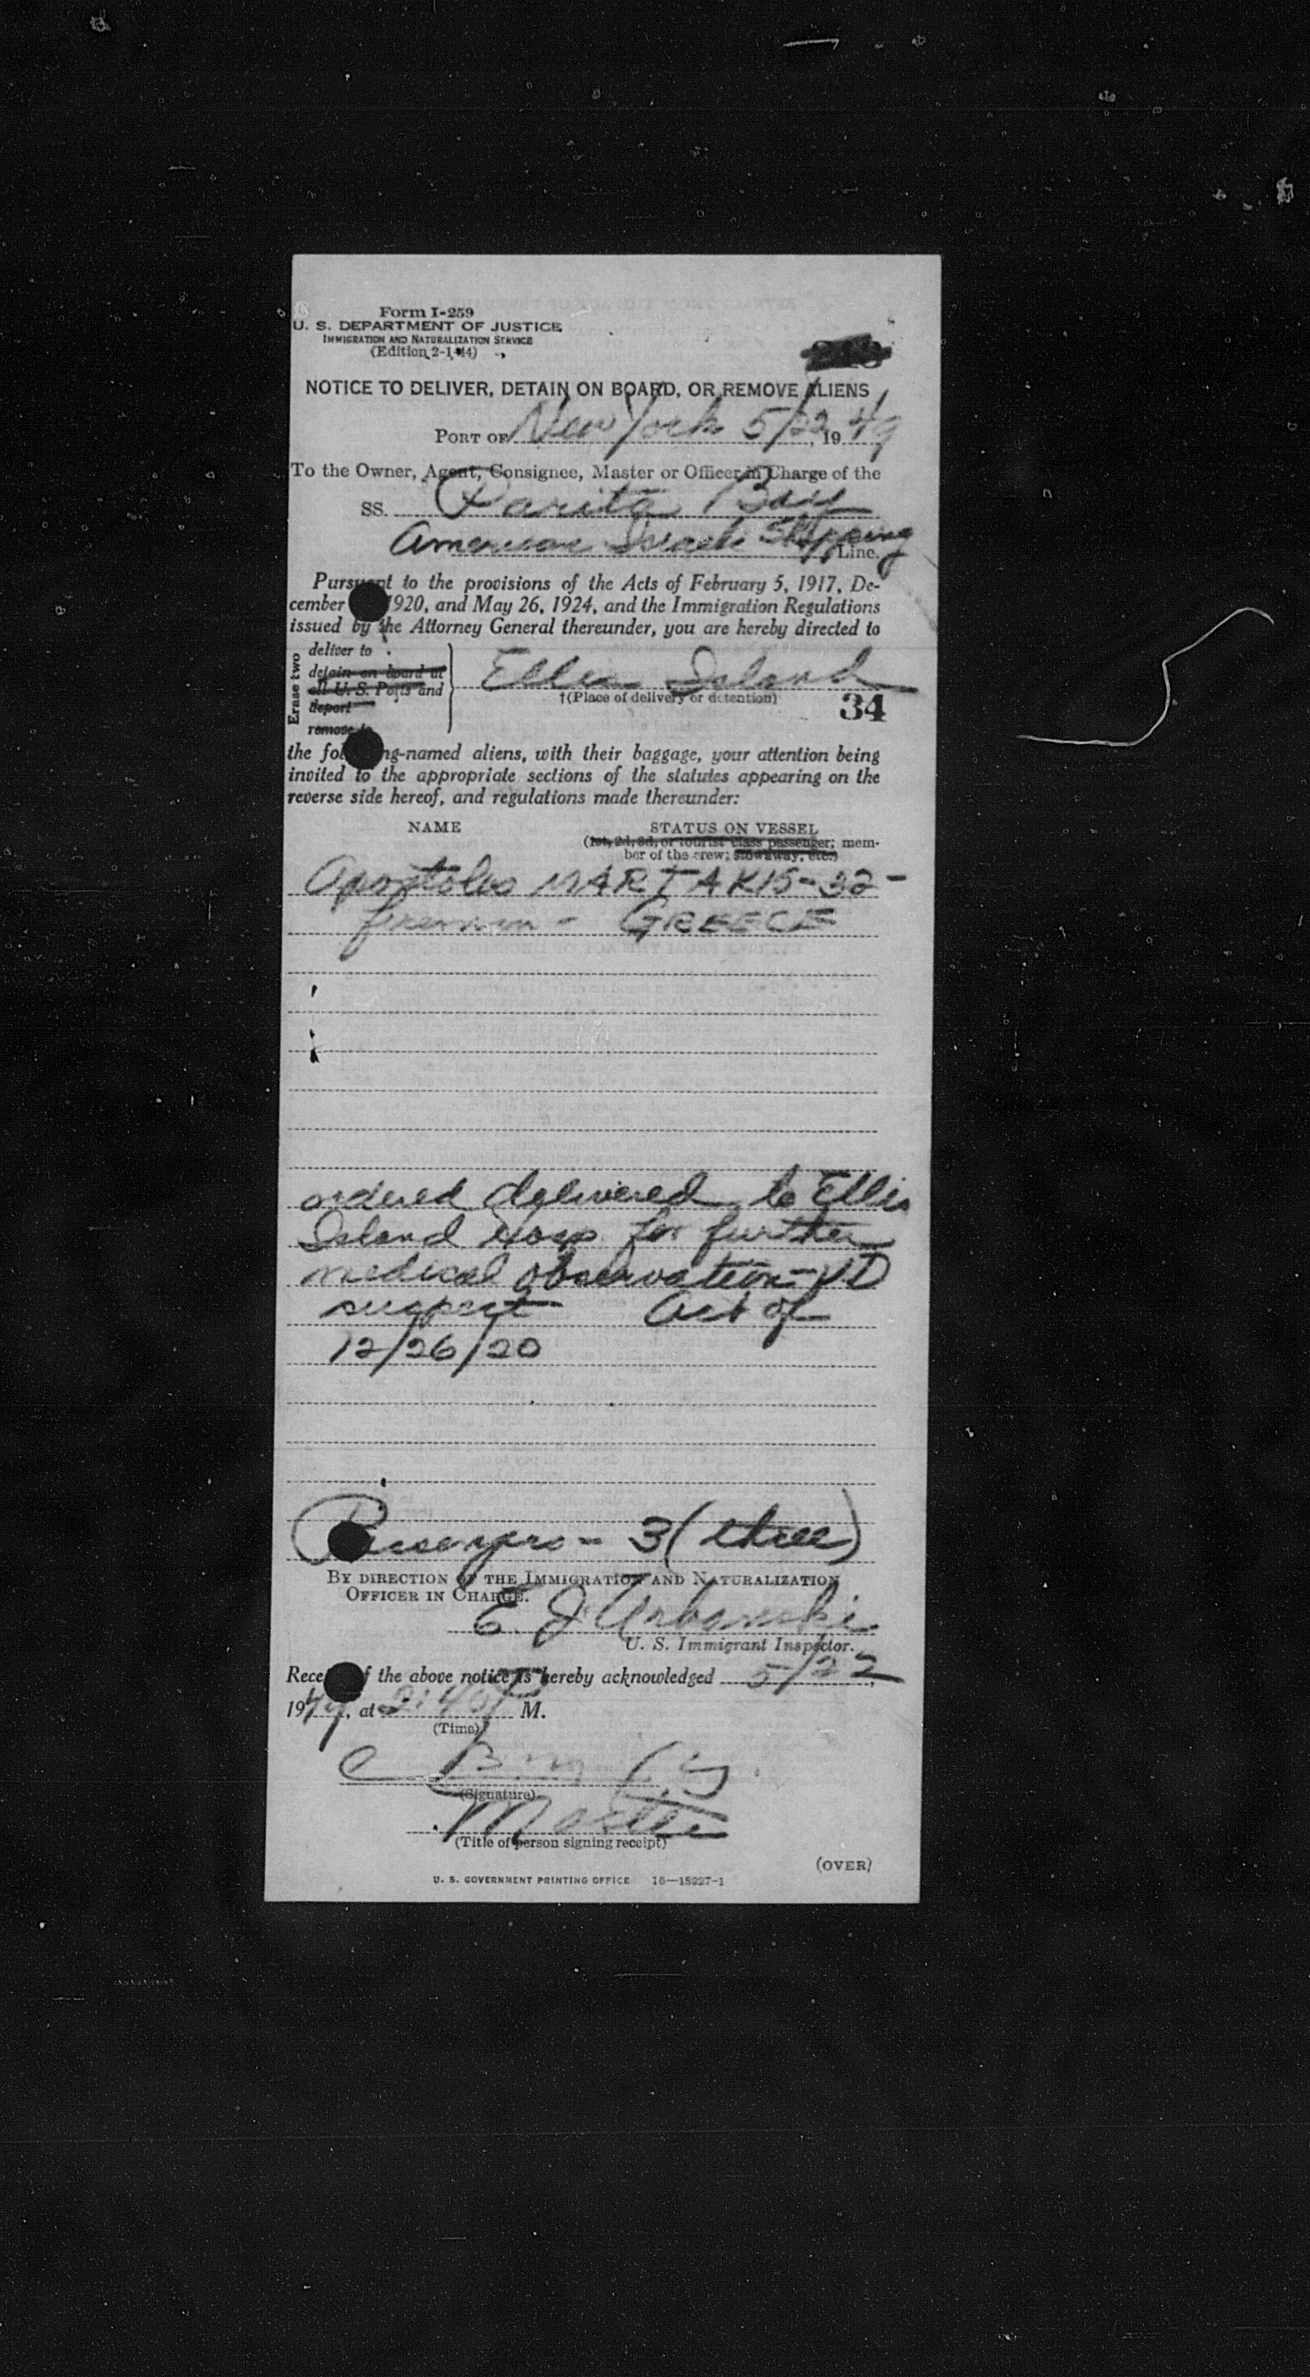 Form I-259
U. S. DEPARTMENT OF JUSTICE
IMMIGRATION AND NATURALIZATION SERVICE
(Edition 2-1-44)
NOTICE TO DELIVER, DETAIN ON BOARD, OR REMOVE ALIENS
PORT OF New York 5/22, 1949
To the Owner, Agent, Consignee, Master or Officer in Charge of the
SS. Parita Bay
American Israeli Shipping Line.
Pursuant to the provisions of the Acts of February 5, 1917, De-
cember 1920, and May 26, 1924, and the Immigration Regulations
issued by the Attorney General thereunder, you are hereby directed to
Erase two
deliver to
detain on board at
all U. S. Ports and
deport
remove to
Ellis Island
†(Place of delivery or detention)
34
the following-named aliens, with their baggage, your attention being
invited to the appropriate sections of the statutes appearing on the
reverse side hereof, and regulations made thereunder:
NAME STATUS ON VESSEL
(1st, 2d, 3d, or tourist class passenger; mem-
ber of the crew; stowaway, etc.)
Apostolos MARTAKIS - 32 -
fireman - GREECE
ordered delivered to Ellis
Island Hosp. for further
medical observation - VD
suspect Act of
12/26/20
3 (three)
BY DIRECTION OF THE IMMIGRATION AND NATURALIZATION
OFFICER IN CHARGE.
E. J. Urbanski
U. S. Immigrant Inspector.
Receipt of the above notice is hereby acknowledged 5/22,
1949, at 2:40 P M.
(Time)
(Signature)
Master
(Title of person signing receipt)
(OVER)
U. S. GOVERNMENT PRINTING OFFICE 16—15227-1